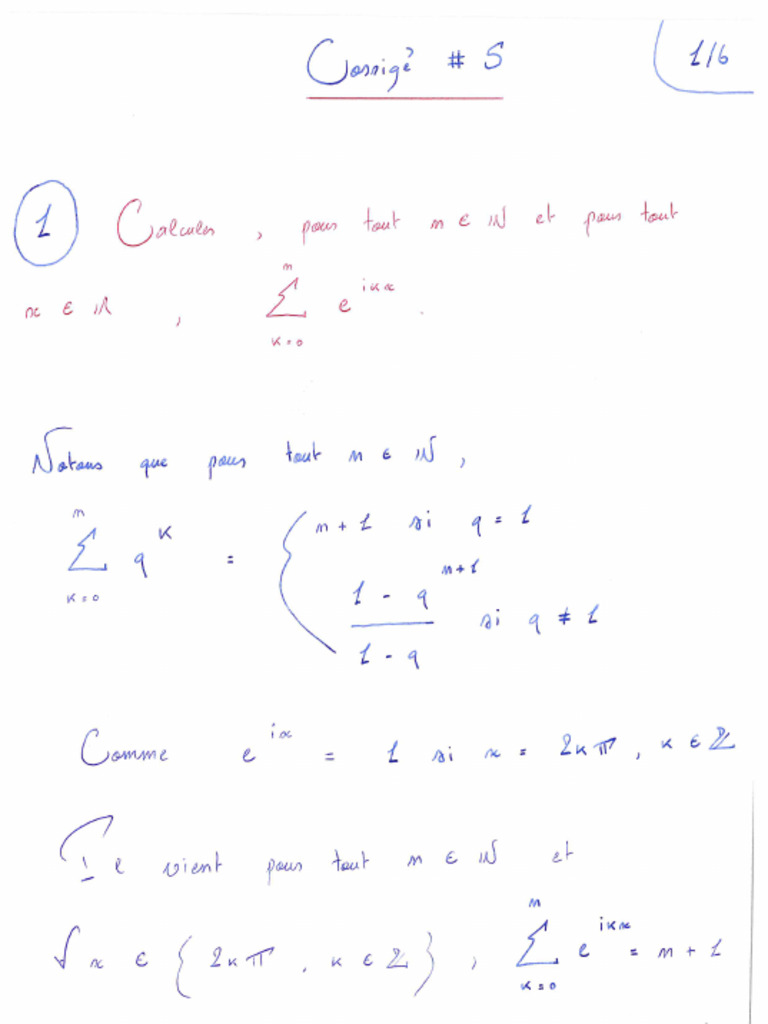 Corrigé # 5
1/6
1 Calculer, pour tout n ∈ ℕ et pour tout
x ∈ ℝ, ∑_{k=0}^{n} e^{ikx}.
Notons que pour tout n ∈ ℕ,
∑_{k=0}^{n} q^k = { n+1 si q = 1
(1 - q^{n+1}) / (1 - q) si q ≠ 1
Comme e^{ix} = 1 si x = 2kπ, k ∈ ℤ
Il vient pour tout n ∈ ℕ et
∀ x ∈ {2kπ, k ∈ ℤ}, ∑_{k=0}^{n} e^{ikx} = n+1